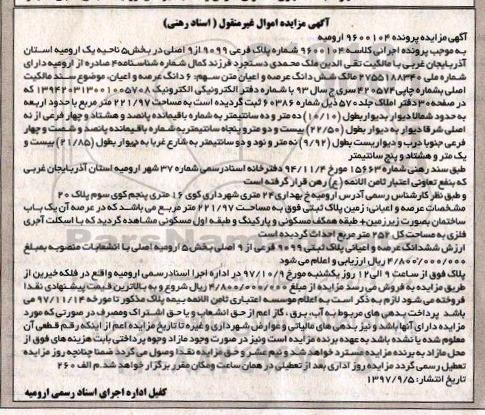 آگهی مزایده اموال غیرمنقول ( اسناد رهنی)
آگهی مزایده پرونده ۹۶۰۰۱۰۴ ارومیه
به موجب پرونده اجرائی کلاسه ۹۶۰۰۱۰۴ شماره پلاک فرعی ۹۰۹۹ از ۹ اصلی در بخش ۵ ناحیه یک ارومیه استان
آذربایجان غربی با مالکیت تقی الدین ملک محمدی دستجرد فرزند کمال شماره شناسنامه ۴ صادره از ارومیه دارای
شماره ملی ۲۷۵۵۱۸۸۳۴۰ مالک شش دانگ عرصه و اعیان متن سهم: ۶ دانگ عرصه و اعیان، موضوع سند مالکیت
اصلی بشماره چاپی ۴۲۰۵۷۴ سری ج سال ۹۳ با شماره دفتر الکترونیکی الکترونیک ۱۳۹۴۲۰۳۱۳۰۰۱۰۰۵۷۰۸ که
در صفحه ۳۰ دفتر املاک جلد ۵۷۰ ذیل شماره ۶۰۳۸۶ ثبت گردیده است به مساحت ۲۲۱/۹۷ متر مربع با حدود اربعه
به حدود شمالا دیوار بدیوار بطول (۱۰/۱۰) ده متر و ده سانتیمتر به شماره باقیمانده پانصد و هشتاد و چهار فرعی از نه
اصلی شرقا دیوار به دیوار بطول (۲۲/۵۰) بیست و دو متر و پنجاه سانتیمتر به شماره باقیمانده پانصد و شصت و چهار
فرعی جنوبا درب و دیواریست بطول (۹/۹۲) نه متر و نود و دو سانتیمتر به شارع غربا به دیوار بطول (۲۱/۸۵) بیست و
یک متر و هشتاد و پنج سانتیمتر
طبق سند رهنی شماره ۱۵۶۶۳ مورخ ۹۴/۱۱/۴ دفترخانه اسناد رسمی شماره ۳۷ شهر ارومیه استان آذربایجان غربی
که بنفع تعاونی اعتبار ثامن الائمه (ع) رهن قرار گرفته است
و طبق نظر کارشناس رسمی آدرس ارومیه خ بهداری ۲۴ متری شهرداری کوی ۱۶ متری پنجم کوی سوم پلاک ۲۰
مشخصات عرصه و اعیانی: زمین پلاک ثبتی فوق به مساحت ۲۲۱/۹۷ متر مربع می باشد که در عرصه آن یک باب
ساختمان بصورت زیرزمین+ طبقه همکف مسکونی و پارکینگ و طبقه اول مسکونی مشاهده گردید که با اسکلت آجری
فلزی به مساحت کل ۲۵۲ متر مربع احداث گردیده است
ارزش ششدانگ عرصه و اعیانی پلاک ثبتی ۹۰۹۹ فرعی از ۹ اصلی بخش ۵ ارومیه اصلی با انشعابات منصوبه بمبلغ
۴/۸۰۰/۰۰۰/۰۰۰ ریال ارزیابی و اعلام می شود
پلاک فوق از ساعت ۹ الی ۱۲ روز یکشنبه مورخ ۹۷/۱۰/۹ در اداره اجرا اسناد رسمی ارومیه واقع در فلکه خیرین از
طریق مزایده به فروش می رسد مزایده از مبلغ ۴/۸۰۰/۰۰۰/۰۰۰ ریال شروع و به بالاترین قیمت پیشنهادی نقدا
فروخته می شود لازم به ذکر است به اعلام موسسه اعتباری ثامن الائمه بیمه پلاک مذکور تا مورخه ۹۷/۱۱/۱۴ می
باشد پرداخت بدهی های مربوط به آب، برق، گاز اعم از حق انشعاب و یا حق اشتراک ومصرف در صورتی که مورد
مزایده دارای آنها باشد و نیز بدهی های مالیاتی و عوارض شهرداری و غیره تا تاریخ مزایده اعم از اینکه رقم قطعی آن
معلوم شده یا نشده باشد به عهده برنده مزایده است ونیز در صورت وجود مازاد وجوه پرداختی بابت هزینه های فوق از
محل مازاد به برنده مزایده مسترد خواهد شد و نیم عشر و حق مزایده نقدا وصول می گردد ضمنا چنانچه روز مزایده
تعطیل رسمی گردد مزایده روز اداری بعد از تعطیلی در همان ساعت ومکان مقرر برگزار خواهد شد. م الف ۲۶۰
تاریخ انتشار: ۱۳۹۷/۹/۵
کفیل اداره اجرای اسناد رسمی ارومیه